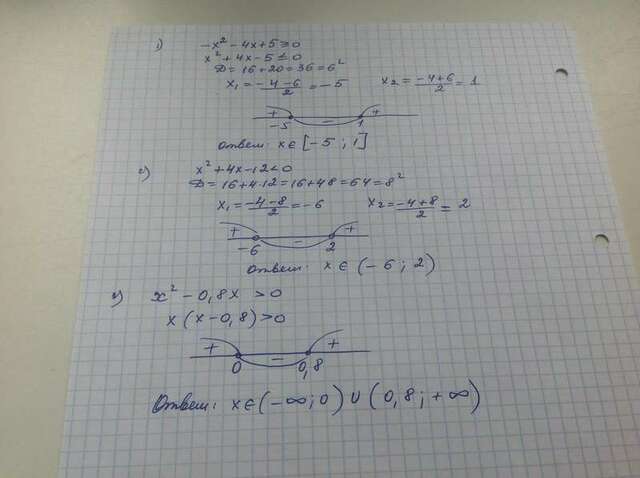 1) -x² - 4x + 5 ≥ 0
x² + 4x - 5 ≤ 0
D = 16 + 20 = 36 = 6²
x₁ = (-4-6)/2 = -5 x₂ = (-4+6)/2 = 1
+ - +
-5 1
Ответ: x ∈ [-5 ; 1]
x² + 4x - 12 < 0
D = 16 + 4·12 = 16 + 48 = 64 = 8²
x₁ = (-4-8)/2 = -6 x₂ = (-4+8)/2 = 2
+ - +
-6 2
Ответ: x ∈ (-6 ; 2)
x² - 0,8x > 0
x (x - 0,8) > 0
+ - +
0 0,8
Ответ: x ∈ (-∞ ; 0) ∪ (0,8 ; +∞)